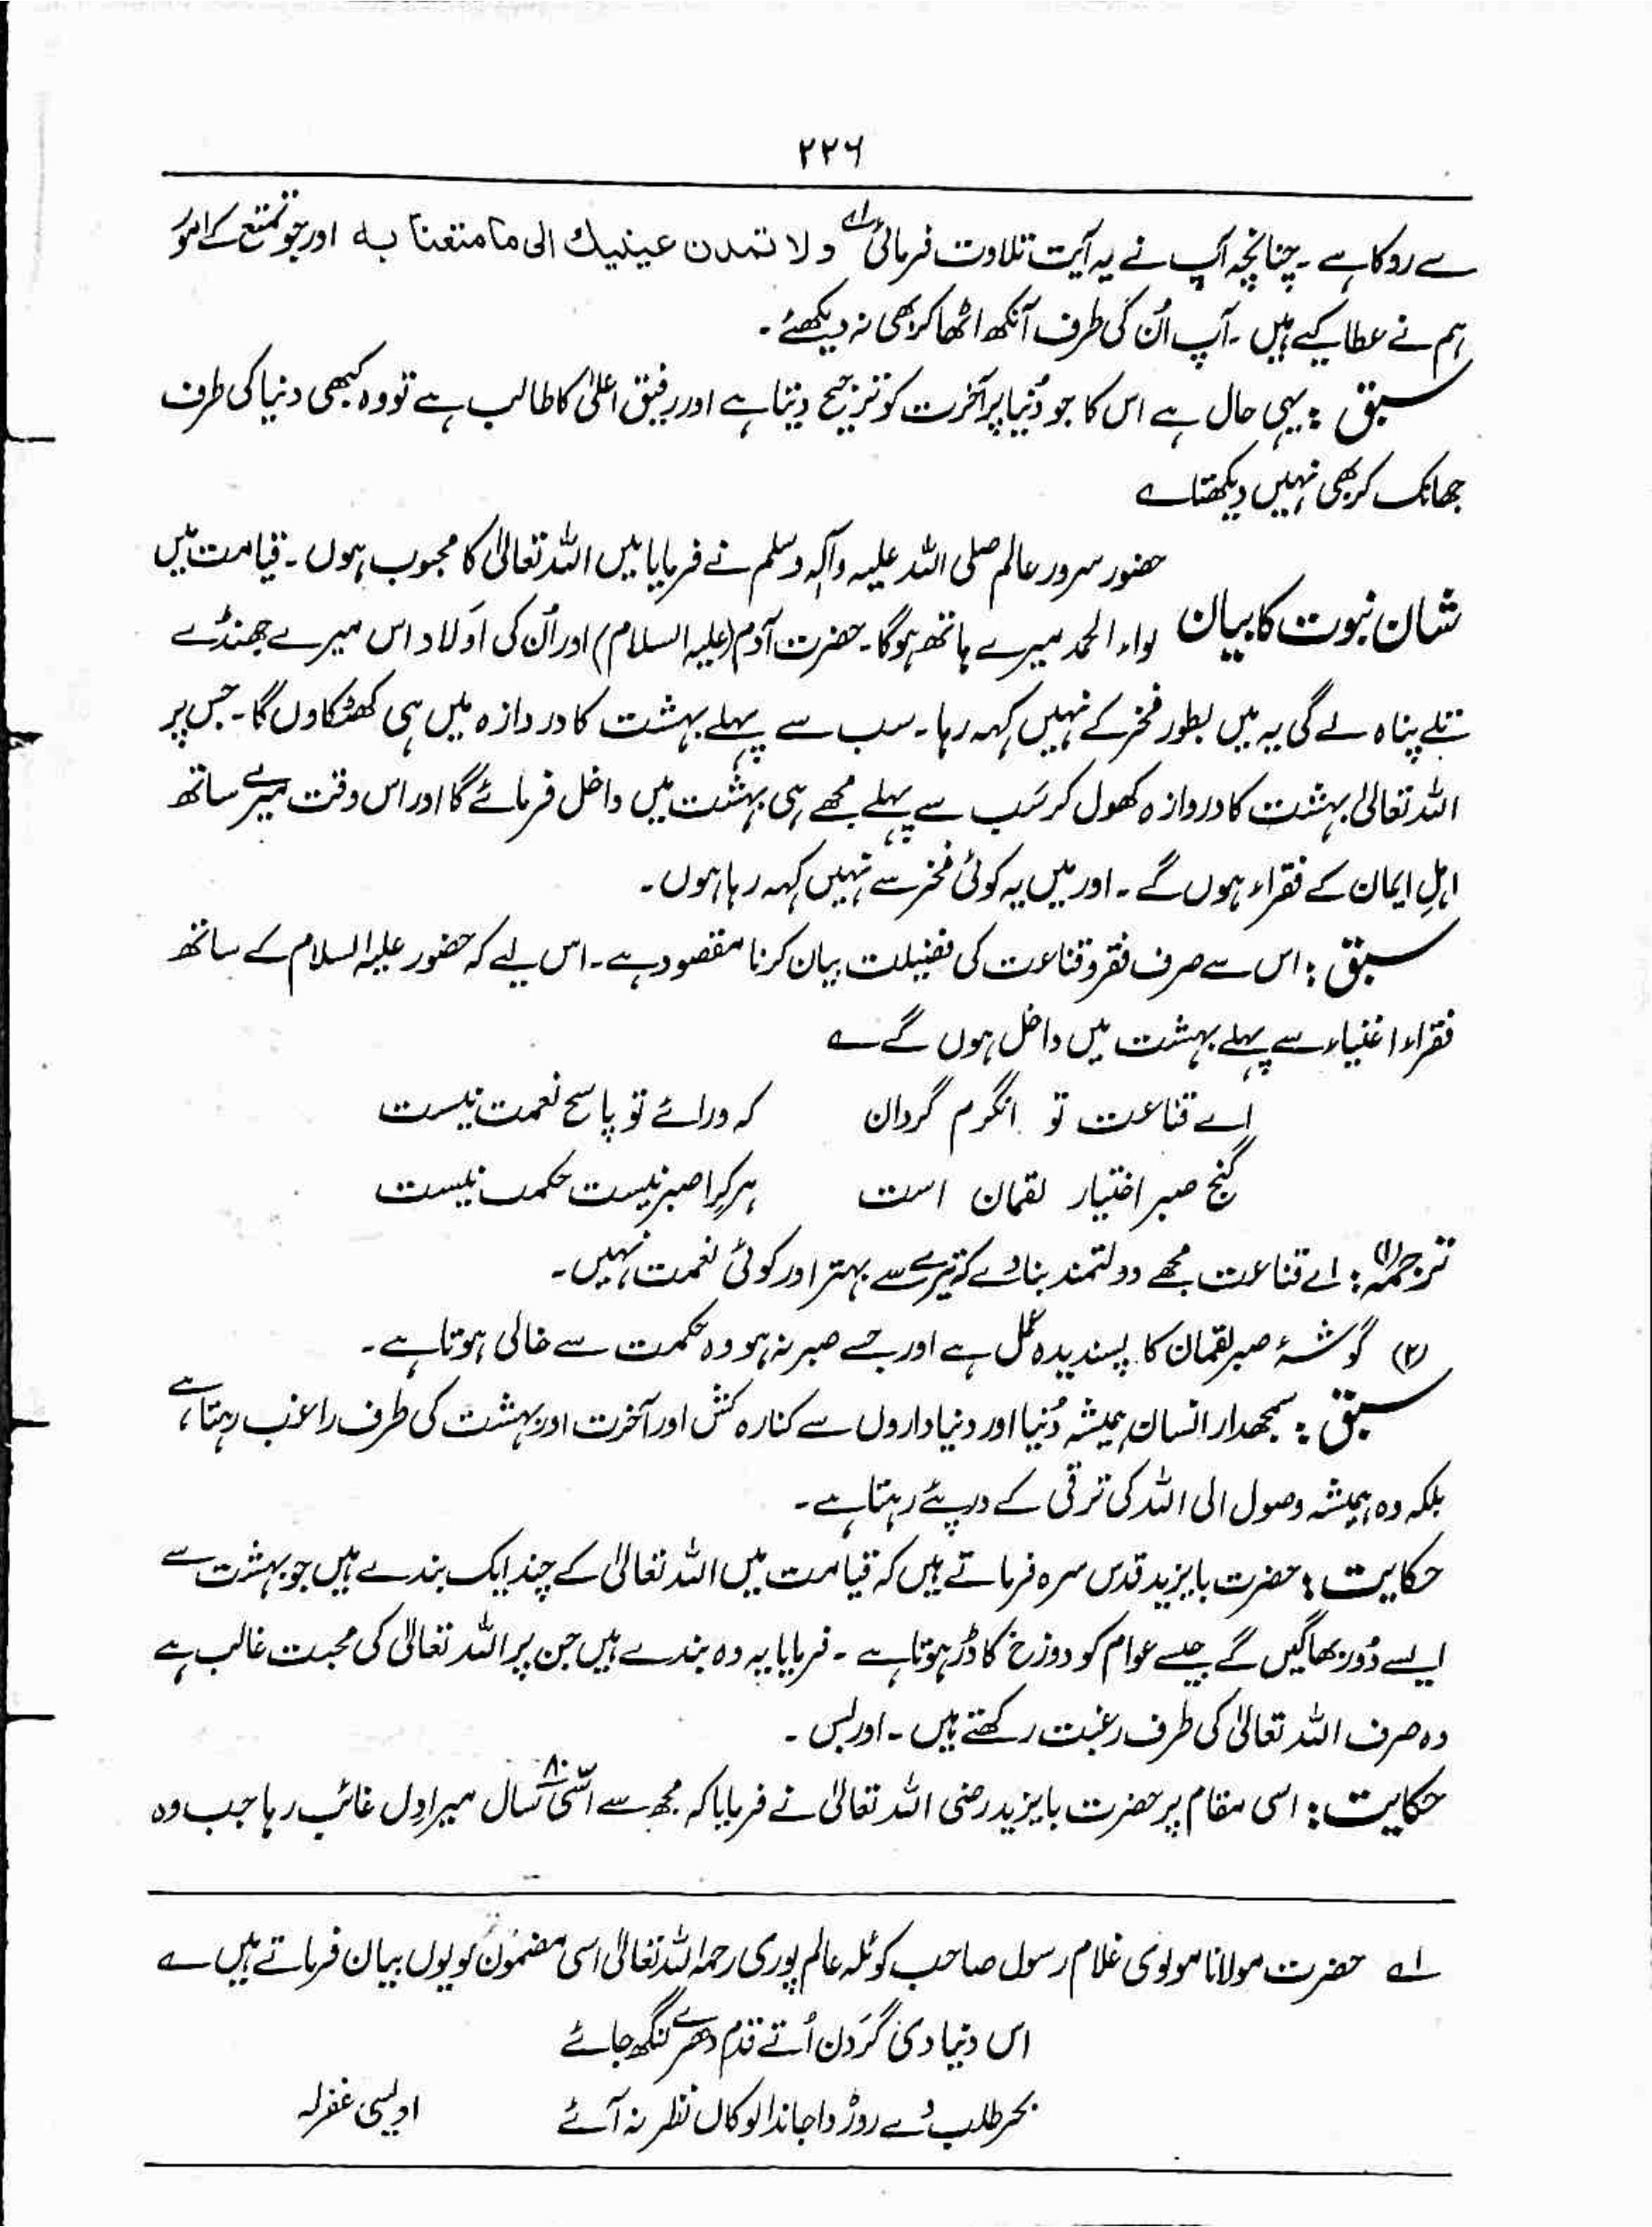 ۲۲۶
سے روکا ہے ۔ چنانچہ آپ نے یہ آیت تلاوت فرمائی لے ولا تمدن عینیك الی ما متعنا به اور جو تمتع کے امور
ہم نے عطا کیے ہیں ۔ آپ اُن کی طرف آنکھ اٹھا کر بھی نہ دیکھئے ۔
سبق : یہی حال ہے اس کا جو دُنیا پر آخرت کو ترجیح دیتا ہے اور رفیق اعلیٰ کا طالب ہے تو وہ کبھی دنیا کی طرف
جھانک کر بھی نہیں دیکھتا ؎
حضور سرور عالم صلی اللہ علیہ وآلہ وسلم نے فرمایا میں اللہ تعالیٰ کا محبوب ہوں ۔ قیامت میں
شان نبوت کا بیان لواء الحمد میرے ہاتھ ہوگا ۔ حضرت آدم (علیہ السلام) اور اُن کی اَولاد اس میرے جھنڈے
تلے پناہ لے گی یہ میں بطور فخر کے نہیں کہہ رہا ۔ سب سے پہلے بہشت کا دروازہ میں ہی کھٹکاوں گا ۔ جس پر
اللہ تعالیٰ بہشت کا دروازہ کھول کر سَب سے پہلے مجھے ہی بہشت میں داخل فرمائے گا اور اس وقت میرے ساتھ
اہلِ ایمان کے فقراء ہوں گے ۔ اور میں یہ کوئی فخر سے نہیں کہہ رہا ہوں ۔
سبق : اس سے صرف فقر و قناعت کی فضیلت بیان کرنا مقصود ہے ۔ اس لیے کہ حضور علیہ السلام کے ساتھ
فقراء اغنیاء سے پہلے بہشت میں داخل ہوں گے ؎
اے قناعت تو انگرم گردان کہ ورائے تو پاسح نعمت نیست
گنج صبر اختیار لقمان است ہر کرا صبر نیست حکمت نیست
ترجمہ (۱) : اے قناعت مجھے دولتمند بنادے کہ تیرے سے بہتر اور کوئی نعمت نہیں ۔
(۲) گوشۂ صبر لقمان کا پسندیدہ عمل ہے اور جسے صبر نہ ہو وہ حکمت سے خالی ہوتا ہے ۔
سبق : سمجھدار انسان ہمیشہ دُنیا اور دنیاداروں سے کنارہ کش اور آخرت اور بہشت کی طرف راغب رہتا ہے ،
بلکہ وہ ہمیشہ وصول الی اللہ کی ترقی کے درپئے رہتا ہے ۔
حکایت : حضرت بایزید قدس سرہ فرماتے ہیں کہ قیامت میں اللہ تعالیٰ کے چند ایک بندے ہیں جو بہشت سے
ایسے دُور بھاگیں گے جیسے عوام کو دوزخ کا ڈر ہوتا ہے ۔ فرمایا یہ وہ بندے ہیں جن پر اللہ تعالیٰ کی محبت غالب ہے
وہ صرف اللہ تعالیٰ کی طرف رغبت رکھتے ہیں ۔ اور بس ۔
حکایت : اسی مقام پر حضرت بایزید رضی اللہ تعالیٰ نے فرمایا کہ مجھ سے اسّی ۸۰ سال میرا دِل غائب رہا جب وہ
لے حضرت مولانا مولوی غلام رسول صاحب کوٹلہ عالم پوری رحمۃ اللہ تعالیٰ اسی مضمون کو یوں بیان فرماتے ہیں ؎
اس دنیا دی گردن اُتے قدم دھرے لنگھ جائے
بحر طلب دے روڑ دا جاندا لوکاں نظر نہ آئے اویسی غفرلہ